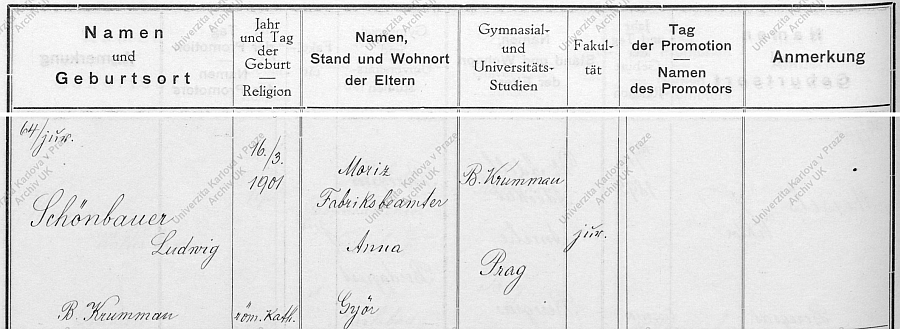 Namen
und
Geburtsort
Jahr
und Tag
der
Geburt
Religion
Namen,
Stand und Wohnort
der Eltern
Gymnasial-
und
Universitäts-
Studien
Fakul-
tät
Tag
der Promotion
Namen
des Promotors
Anmerkung
64/jur.
Schönbauer
Ludwig
B. Krummau
16./3.
1901
röm. Kath.
Moriz
Fabriksbeamter
Anna
Györ
B. Krummau
Prag
jur.
Univerzita Karlova v Praze
Archiv UK